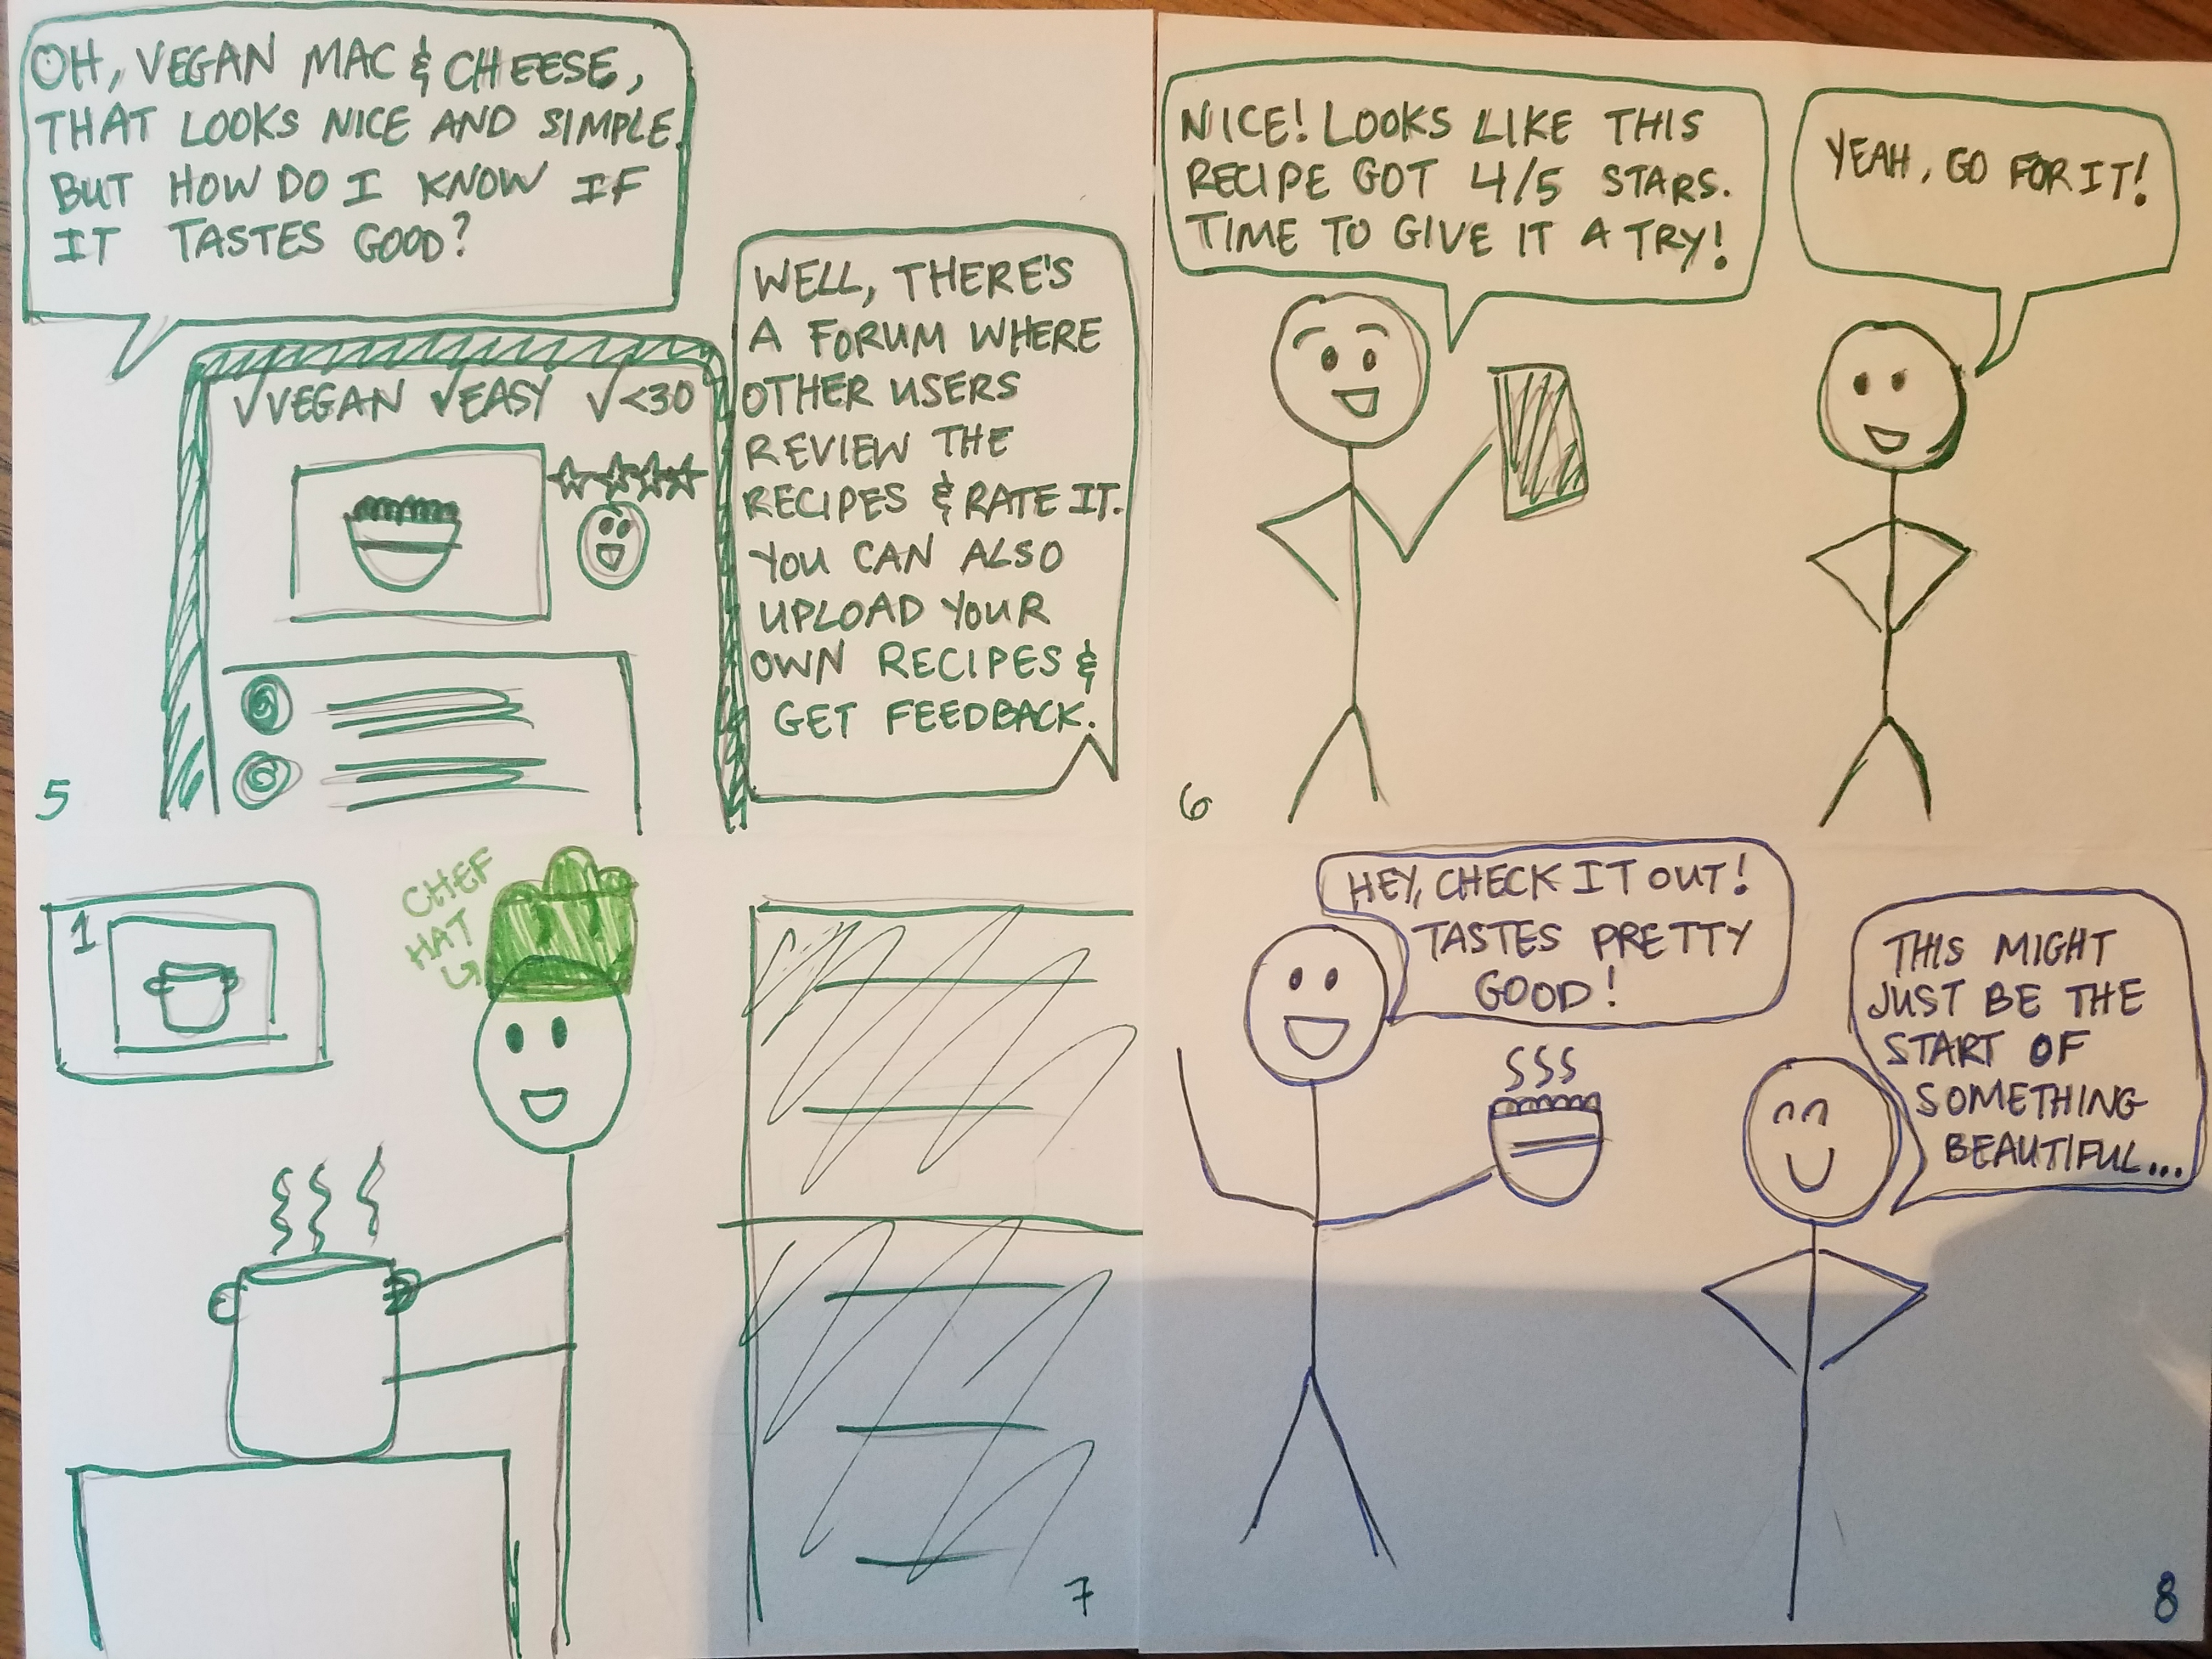 OH, VEGAN MAC & CHEESE,
THAT LOOKS NICE AND SIMPLE.
BUT HOW DO I KNOW IF
IT TASTES GOOD?
WELL, THERE'S
A FORUM WHERE
OTHER USERS
REVIEW THE
RECIPES & RATE IT.
YOU CAN ALSO
UPLOAD YOUR
OWN RECIPES &
GET FEEDBACK.
√VEGAN √EASY √<30
5
NICE! LOOKS LIKE THIS
RECIPE GOT 4/5 STARS.
TIME TO GIVE IT A TRY!
YEAH, GO FOR IT!
6
1
CHEF
HAT
7
HEY, CHECK IT OUT!
TASTES PRETTY
GOOD!
THIS MIGHT
JUST BE THE
START OF
SOMETHING
BEAUTIFUL...
8